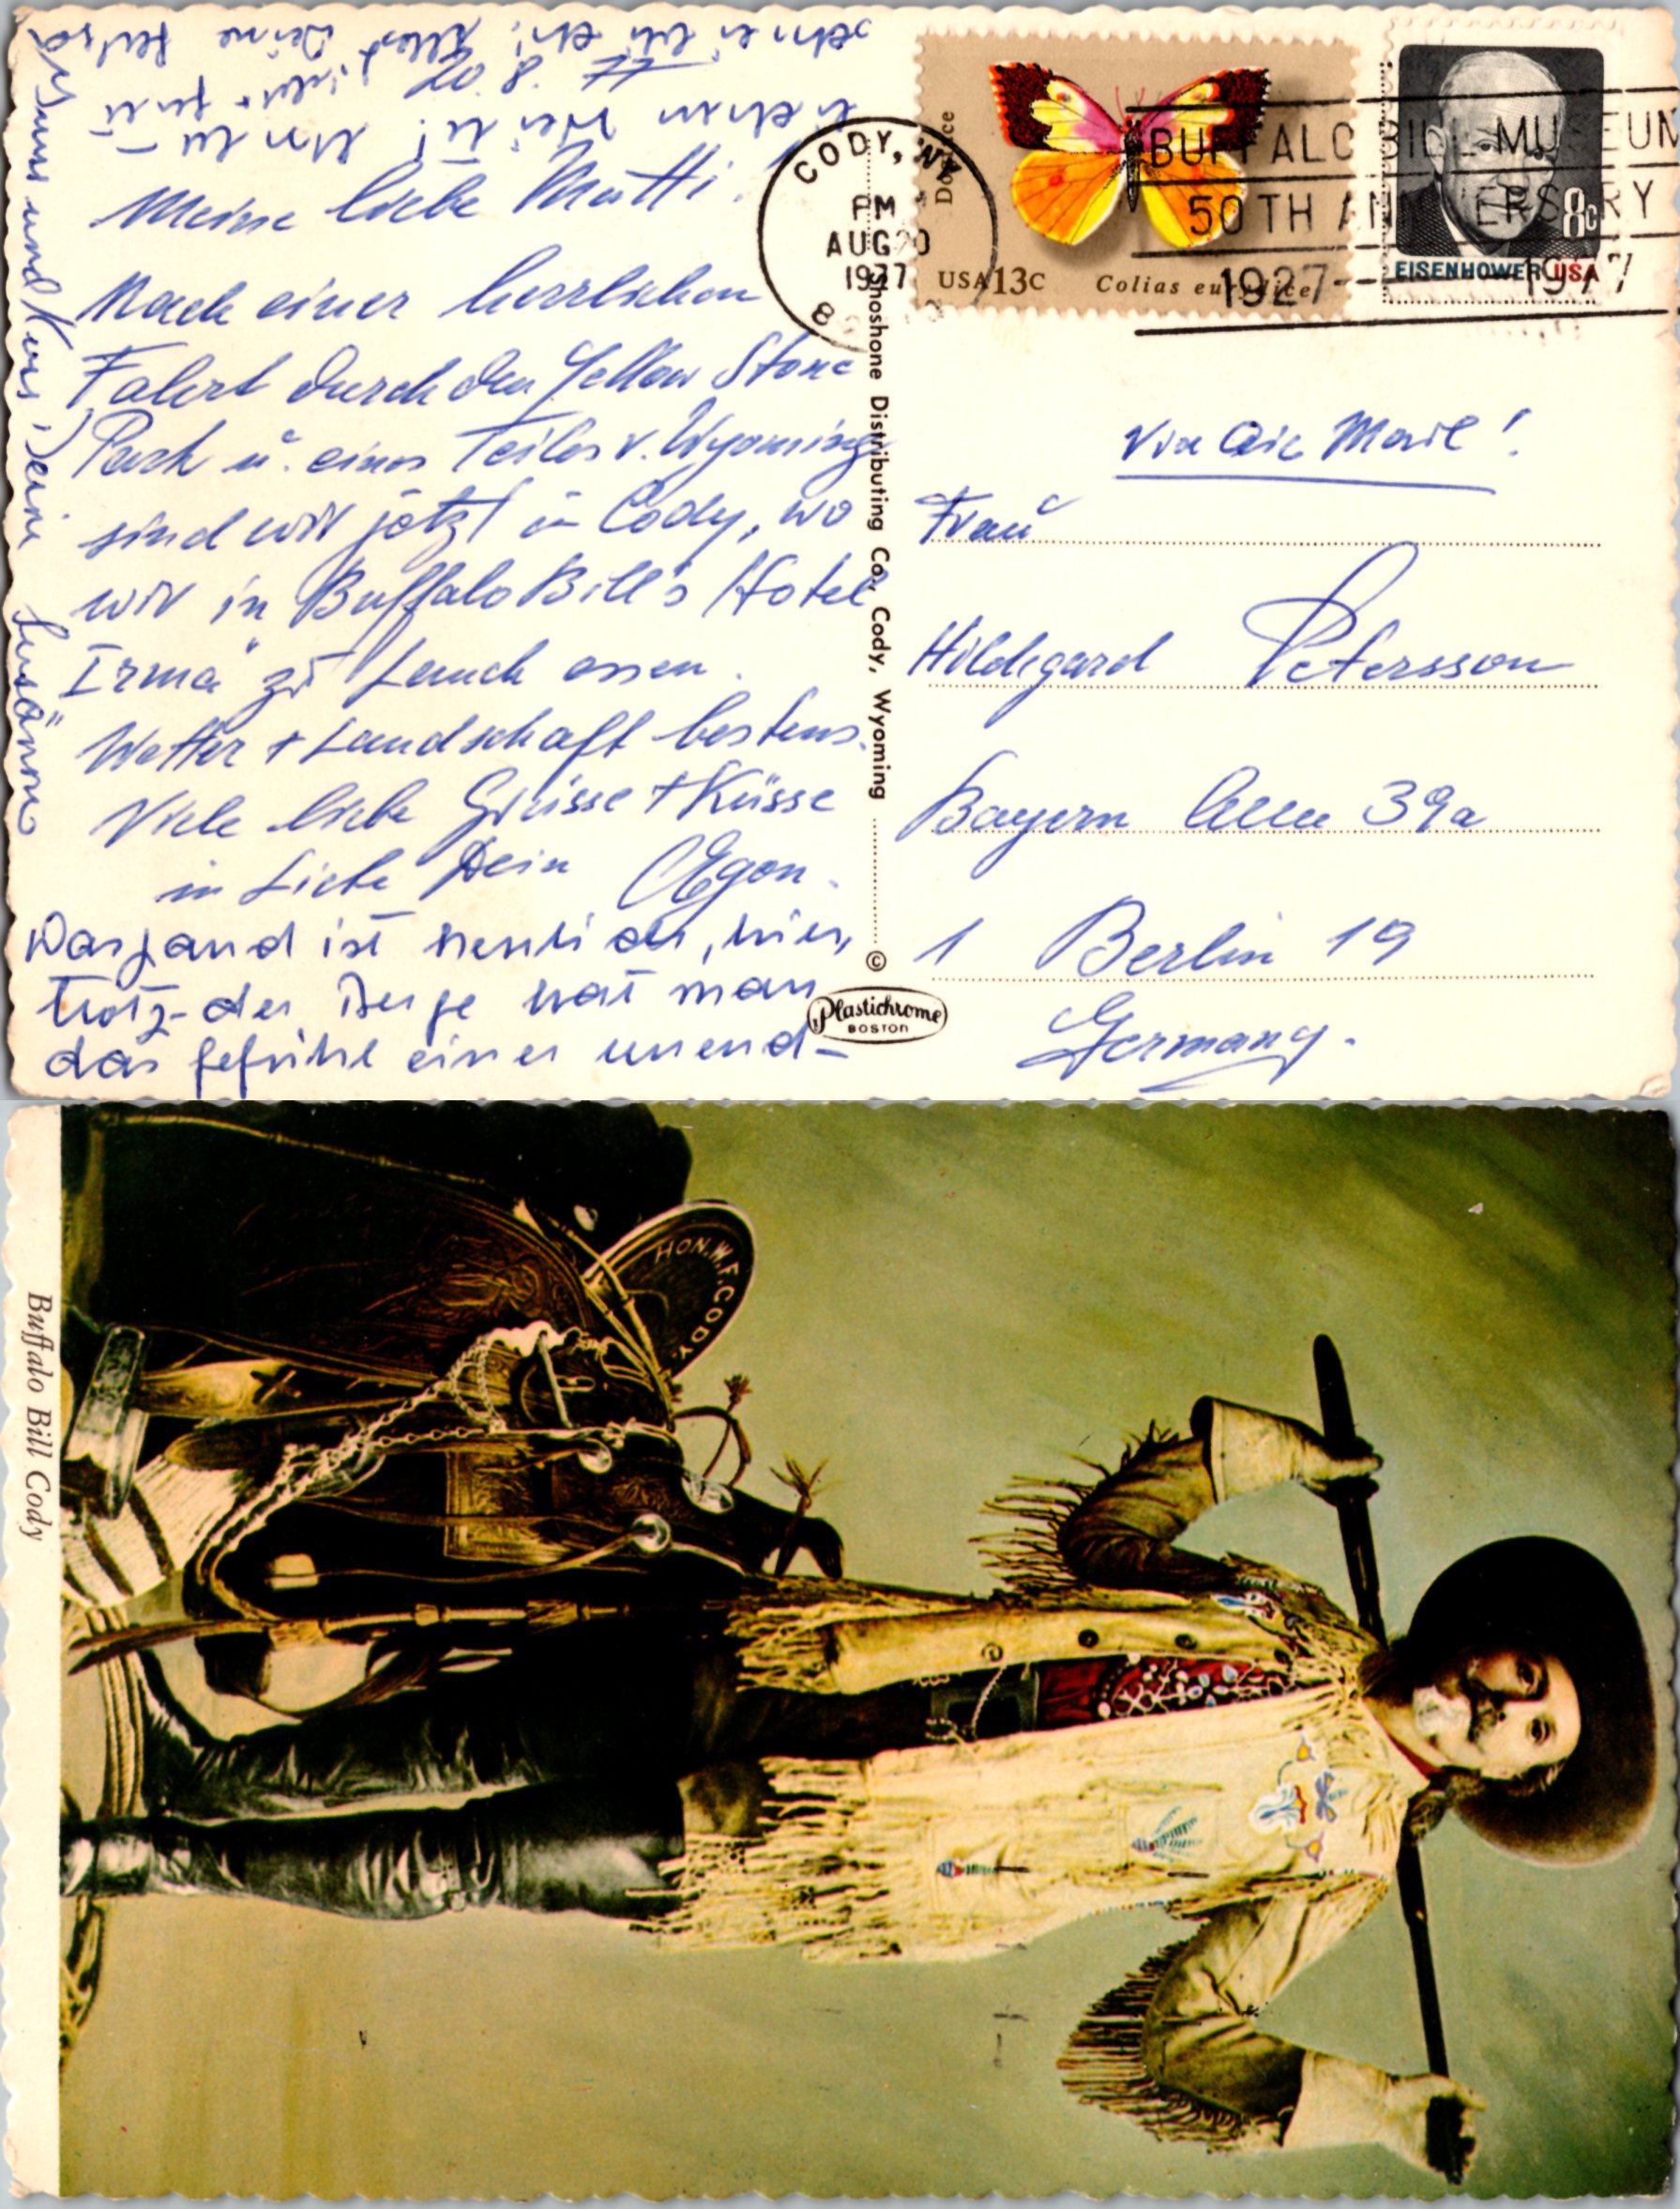 Meine liebe Mutti!
Nach einer herrlichen
Fahrt durch den Yellow Stone
Park u. eines Teiles v. Wyoming
sind wir jetzt in Cody, wo
wir in Buffalo Bill's Hotel
Irma" zu Lunch essen.
Wetter + Landschaft bestens.
Viele liebe Grüsse + Küsse
in Liebe Dein Egon.
Das Land ist hier,
trotz der Berge hat man
das Gefühl einer unend-
lichen Weite!
20.8.77
Deine
Gruss und Kuss Deine Susanne
CODY, WY
PM
AUG 20
1977
BUFFALO BILL MUSEUM
50TH ANNIVERSARY
1927-1977
Dogface
USA 13c Colias eurydice
8c
EISENHOWER USA
Shoshone Distributing Co., Cody, Wyoming
©
Plastichrome
BOSTON
Via Air Mail!
Frau
Hildegard Petersson
Bayern Allee 39a
1 Berlin 19
Germany.
HON. W. F. CODY.
Buffalo Bill Cody